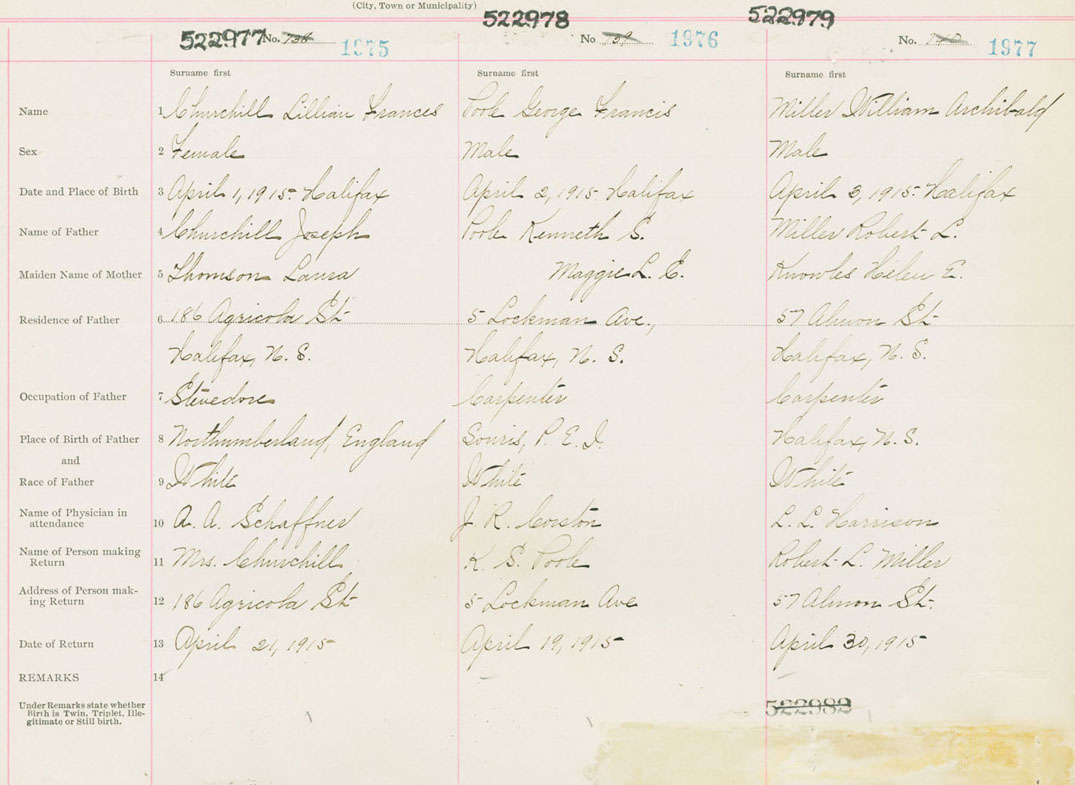 (City, Town or Municipality)
522977 No. 1975
522978 No. 1976
522979 No. 1977
Surname first Surname first Surname first
Name 1 Churchill Lillian Frances Poole George Francis Miller William Archibald
Sex 2 Female Male Male
Date and Place of Birth 3 April 1, 1915 Halifax April 2, 1915 Halifax April 3, 1915 Halifax
Name of Father 4 Churchill Joseph Poole Kenneth S. Miller Robert L.
Maiden Name of Mother 5 Thomson Laura Maggie L. E. Knowles Helen E.
Residence of Father 6 186 Agricola St 5 Lockman Ave., 57 Almon St
Halifax, N. S. Halifax, N. S. Halifax, N. S.
Occupation of Father 7 Stevedore Carpenter Carpenter
Place of Birth of Father 8 Northumberland, England Souris, P. E. I. Halifax, N. S.
and
Race of Father 9 White White White
Name of Physician in
attendance 10 A. A. Schaffner J. R. Corston L. L. Harrison
Name of Person making
Return 11 Mrs. Churchill K. S. Poole Robert L. Miller
Address of Person mak-
ing Return 12 186 Agricola St 5 Lockman Ave 57 Almon St.
Date of Return 13 April 21, 1915 April 19, 1915 April 30, 1915
REMARKS 14
Under Remarks state whether
Birth is Twin, Triplet, Ille-
gitimate or Still birth.
522982